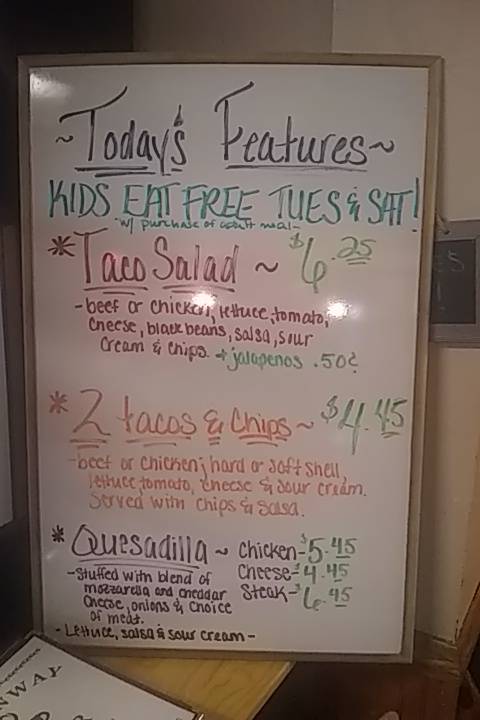 ~Today's Features~
KIDS EAT FREE TUES & SAT!
-w/ purchase of adult meal-
*Taco Salad ~ $6.25
-beef or chicken, lettuce, tomato,
cheese, black beans, salsa, sour
cream & chips. + jalapenos .50¢
*2 tacos & Chips ~ $4.45
-beef or chicken; hard or soft shell,
lettuce, tomato, cheese & sour cream.
Served with chips & salsa.
*Quesadilla ~ Chicken-$5.45
Cheese-$4.45
Steak-$6.45
-Stuffed with blend of
mozzarella and cheddar
cheese, onions & choice
of meat.
-Lettuce, salsa & sour cream-
NWAY